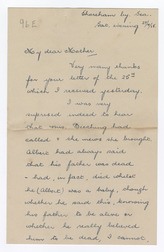 Shoreham by Sea.
Sat. evening
96 E
My dear Mother
Very many thanks
for your letter of the 25th
which I received yesterday.
I was very
surprised indeed to hear
that Mrs. had
called & the news she brought.
Albert had always said
that his father was dead
- had, in fact, died whilst
he (Albert) was a baby, though
whether he said this, knowing
his father to be alive or
whether he really believed
him to be dead, I cannot